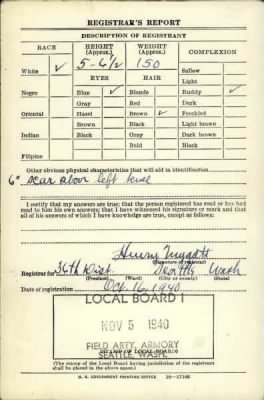 REGISTRAR'S REPORT
DESCRIPTION OF REGISTRANT
RACE HEIGHT (Approx.) WEIGHT (Approx.) COMPLEXION
White ✓ 5-6½ 150 Sallow
EYES HAIR Light
Negro Blue ✓ Blonde Ruddy ✓
Gray Red Dark
Oriental Hazel Brown ✓ Freckled
Brown Black Light brown
Indian Black Gray Dark brown
Bald Black
Filipino
Other obvious physical characteristics that will aid in identification
6" scar above left knee
I certify that my answers are true; that the person registered has read or has had
read to him his own answers; that I have witnessed his signature or mark and that
all of his answers of which I have knowledge are true, except as follows:
Henry
(Signature of registrar)
Registrar for 36th Dist. Seattle Wash
(Precinct) (Ward) (City or county) (State)
Date of registration Oct. 16, 1940
LOCAL BOARD 1
NOV 5 1940
FIELD ARTY. ARMORY
SEATTLE, WASH.
(The stamp of the Local Board having jurisdiction of the registrant
shall be placed in the above space.)
U. S. GOVERNMENT PRINTING OFFICE 16-17105